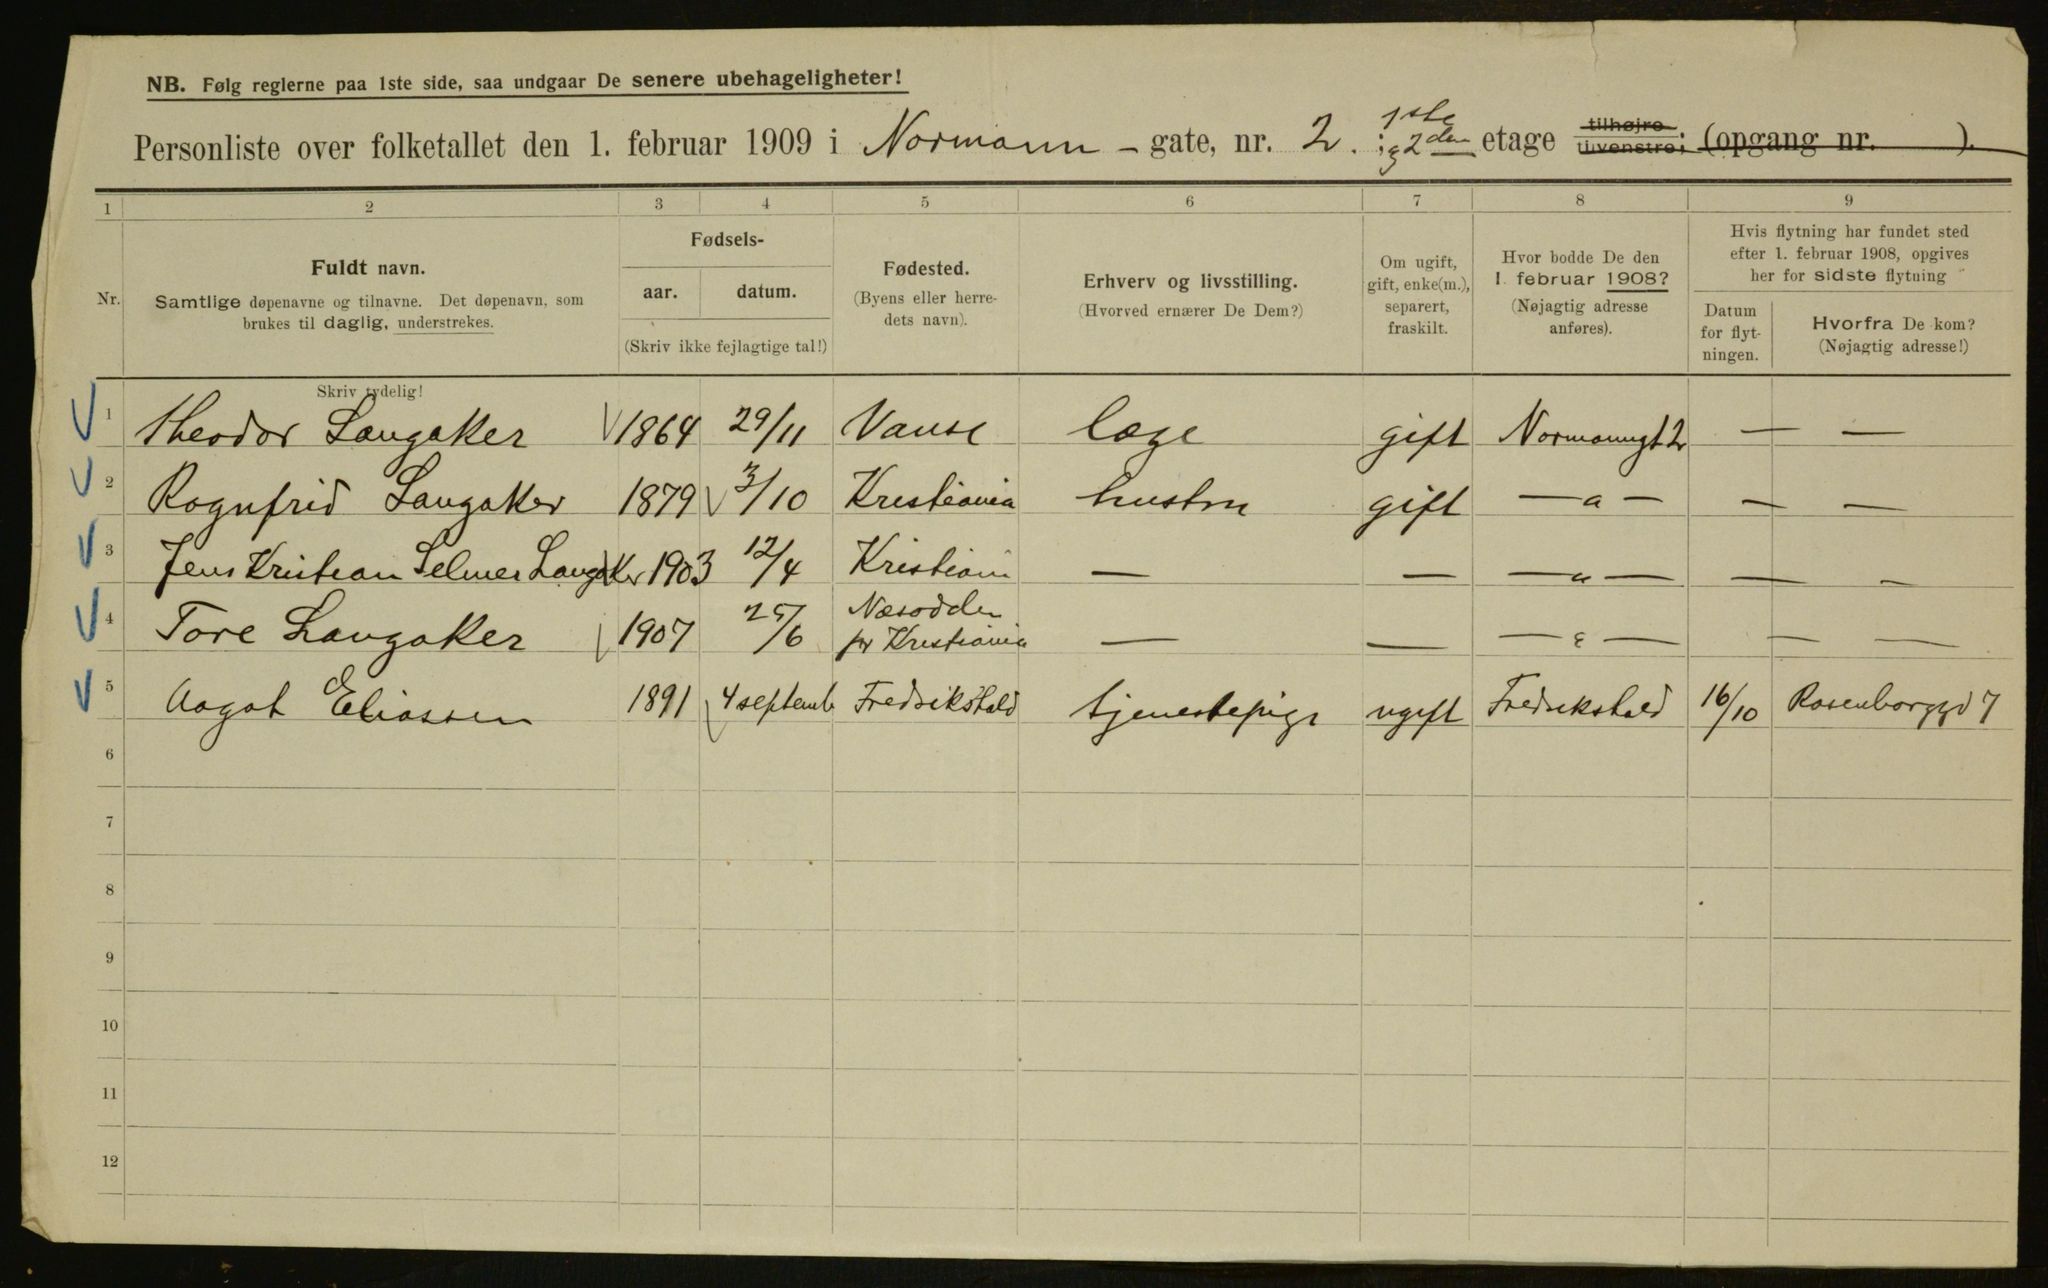 NB. Følg reglerne paa 1ste side, saa undgaar De senere ubehageligheter!
Personliste over folketallet den 1. februar 1909 i Normann - gate, nr. 2. ; 1ste g 2den etage tilhøjre tilvenstre; (opgang nr. ).
1 2 3 4 5 6 7 8 9
Nr.
Fuldt navn.
Samtlige døpenavne og tilnavne. Det døpenavn, som
brukes til daglig, understrekes.
Fødsels-
aar. datum.
(Skriv ikke fejlagtige tal!)
Fødested.
(Byens eller herre-
dets navn).
Erhverv og livsstilling.
(Hvorved ernærer De Dem?)
Om ugift,
gift, enke(m.),
separert,
fraskilt.
Hvor bodde De den
1. februar 1908?
(Nøjagtig adresse
anføres).
Hvis flytning har fundet sted
efter 1. februar 1908, opgives
her for sidste flytning
Datum
for flyt-
ningen.
Hvorfra De kom?
(Nøjagtig adresse!)
Skriv tydelig!
1 Theodor Langaker 1864 29/11 Vanse læge gift Normannsgt 2 — —
2 Ragnfrid Langaker 1879 3/10 Kristiania hustru gift — " — — —
3 Jens Kristian Selmer Langaker 1903 12/4 Kristiania — — — " — — —
4 Tore Langaker 1907 25/6 Næsodden
pr Kristiania — — — " — — —
5 Aagot Eliassen 1891 4 septemb Fredrikshald tjenestepige ugift Fredrikshald 16/10 Rosenborggd 7
6
7
8
9
10
11
12